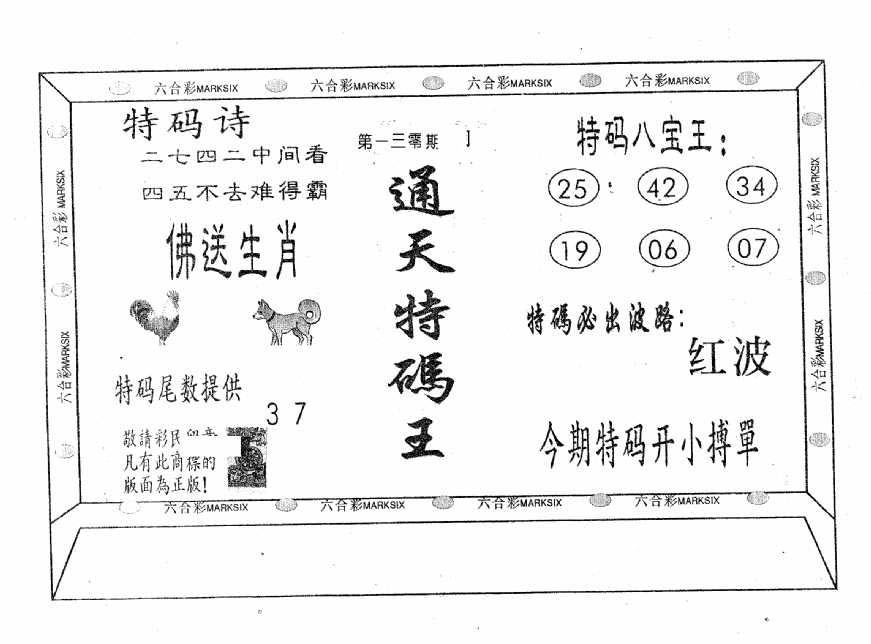 六合彩MARKSIX 六合彩MARKSIX 六合彩MARKSIX 六合彩MARKSIX
特码诗
二七四二中间看
四五不去难得霸
佛送生肖
特码尾数提供
3 7
敬請彩民
凡有此商標的
版面為正版!
第一三零期
通天特碼王
特码八宝王:
25 42 34
19 06 07
特碼必出波路:
红波
今期特码开小搏單
六合彩MARKSIX
六合彩MARKSIX
六合彩MARKSIX
六合彩MARKSIX
六合彩MARKSIX 六合彩MARKSIX 六合彩MARKSIX 六合彩MARKSIX